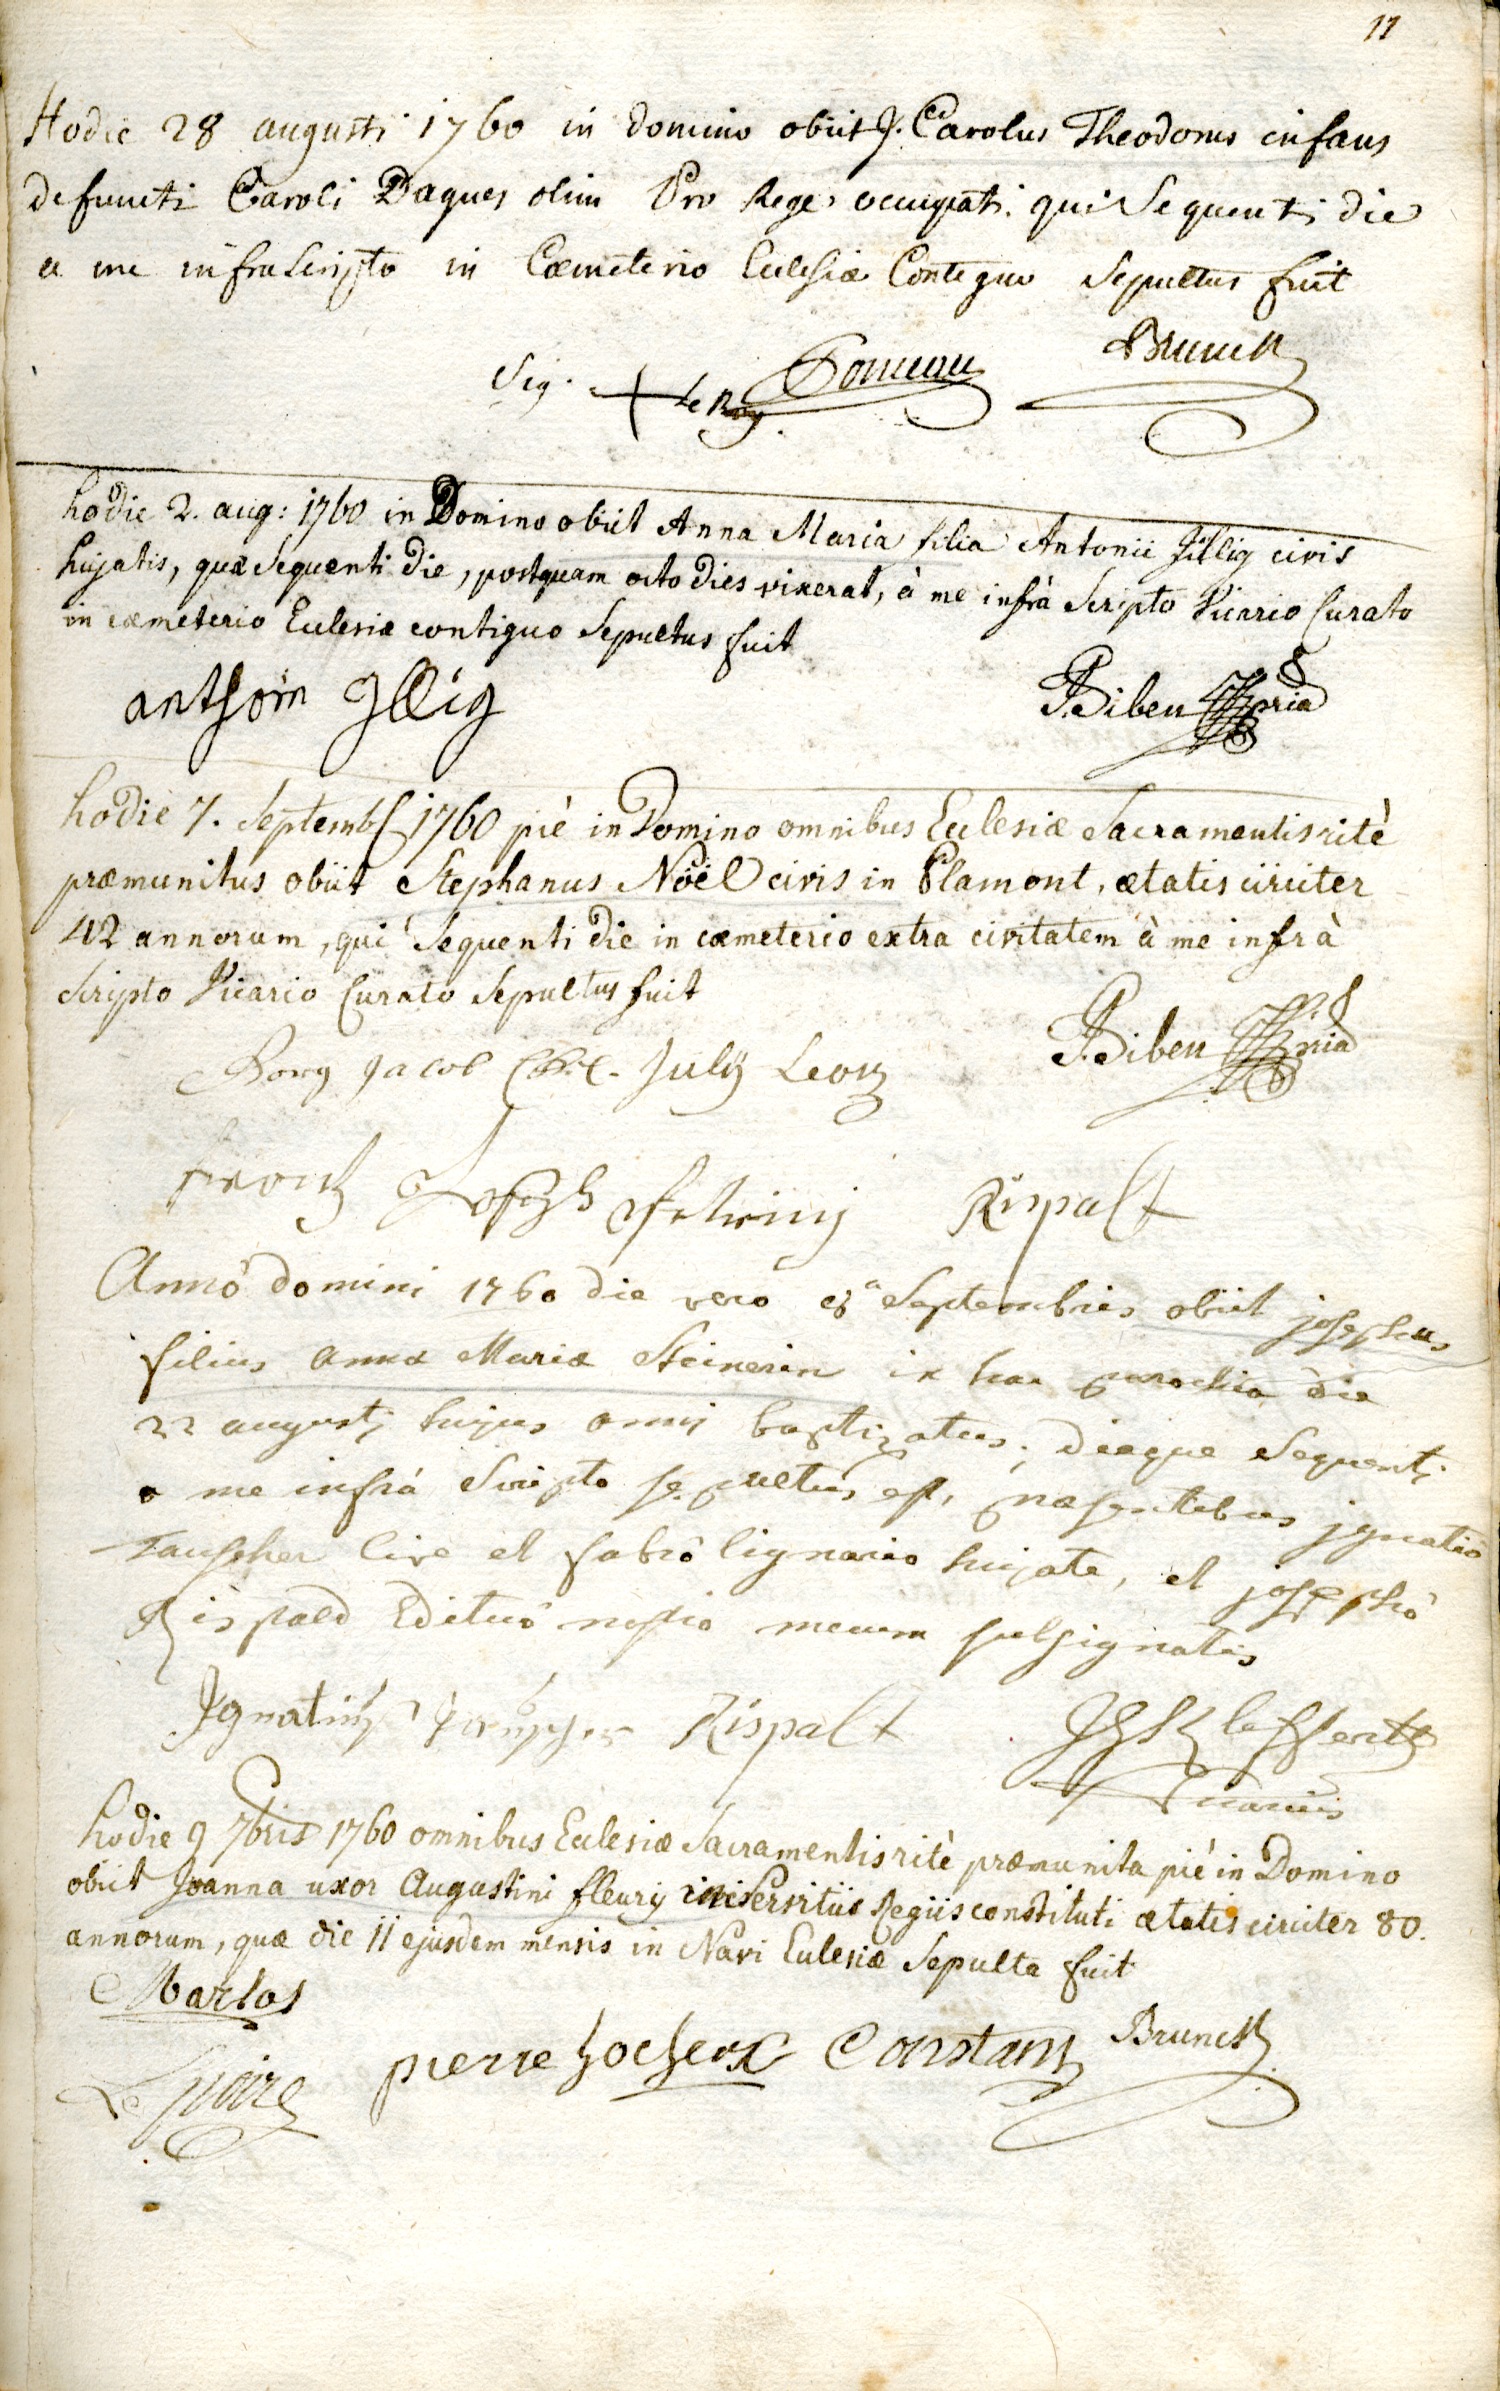 17
Hodie 28 augusti 1760 in Domino obiit J. Carolus Theodorus infans
defuncti Caroli Daques olim Pro Rege occupati. qui Sequenti die
a me infra Scripto in Cœmeterio Ecclesiæ Contiguo Sepultus fuit
Sig. + Le Roy. Brunck
hodie 2. aug: 1760 in Domino obiit Anna Maria filia Antonii Jillig civis
hujatis, quæ Sequenti die, postquam octo dies vixerat, à me infrà Scripto Vicario Curato
in cœmeterio Ecclesiæ contiguo Sepultus fuit
anthoin Jllig P. Biben
hodie 7. Septemb 1760 piè in Domino omnibus Ecclesiæ Sacramentis ritè
præmunitus obiit Stephanus Nöel civis in Blamont, ætatis circiter
42 annorum, qui Sequenti die in cœmeterio extra civitatem à me infrà
Scripto Vicario Curato Sepultus fuit
P. Biben
Jacob July
Joseph Rispalt
Annô domini 1760 die vero 8a Septembris obiit josephus
filius annæ Mariæ Steinerin in hac parochia die
22 augusti hujus anni baptizatus, dieque Sequenti
a me infrà Scripto sepultus est, præsentibus jgnatio
Tauscher Cive et fabrô lignario hujate, et josephô
Rispald Edituô nostro mecum subsignatis
Jgnatius Rispalt
Vicarius
hodie 9 7bris 1760 omnibus Ecclesiæ Sacramentis ritè præmunita piè in Domino
obiit Joanna uxor Augustini fleury in Servitiis Regiis constituti ætatis circiter 80.
annorum, quæ die 11 ejusdem mensis in Navi Ecclesiæ Sepulta fuit
Marlos
pierre Constant Brunck